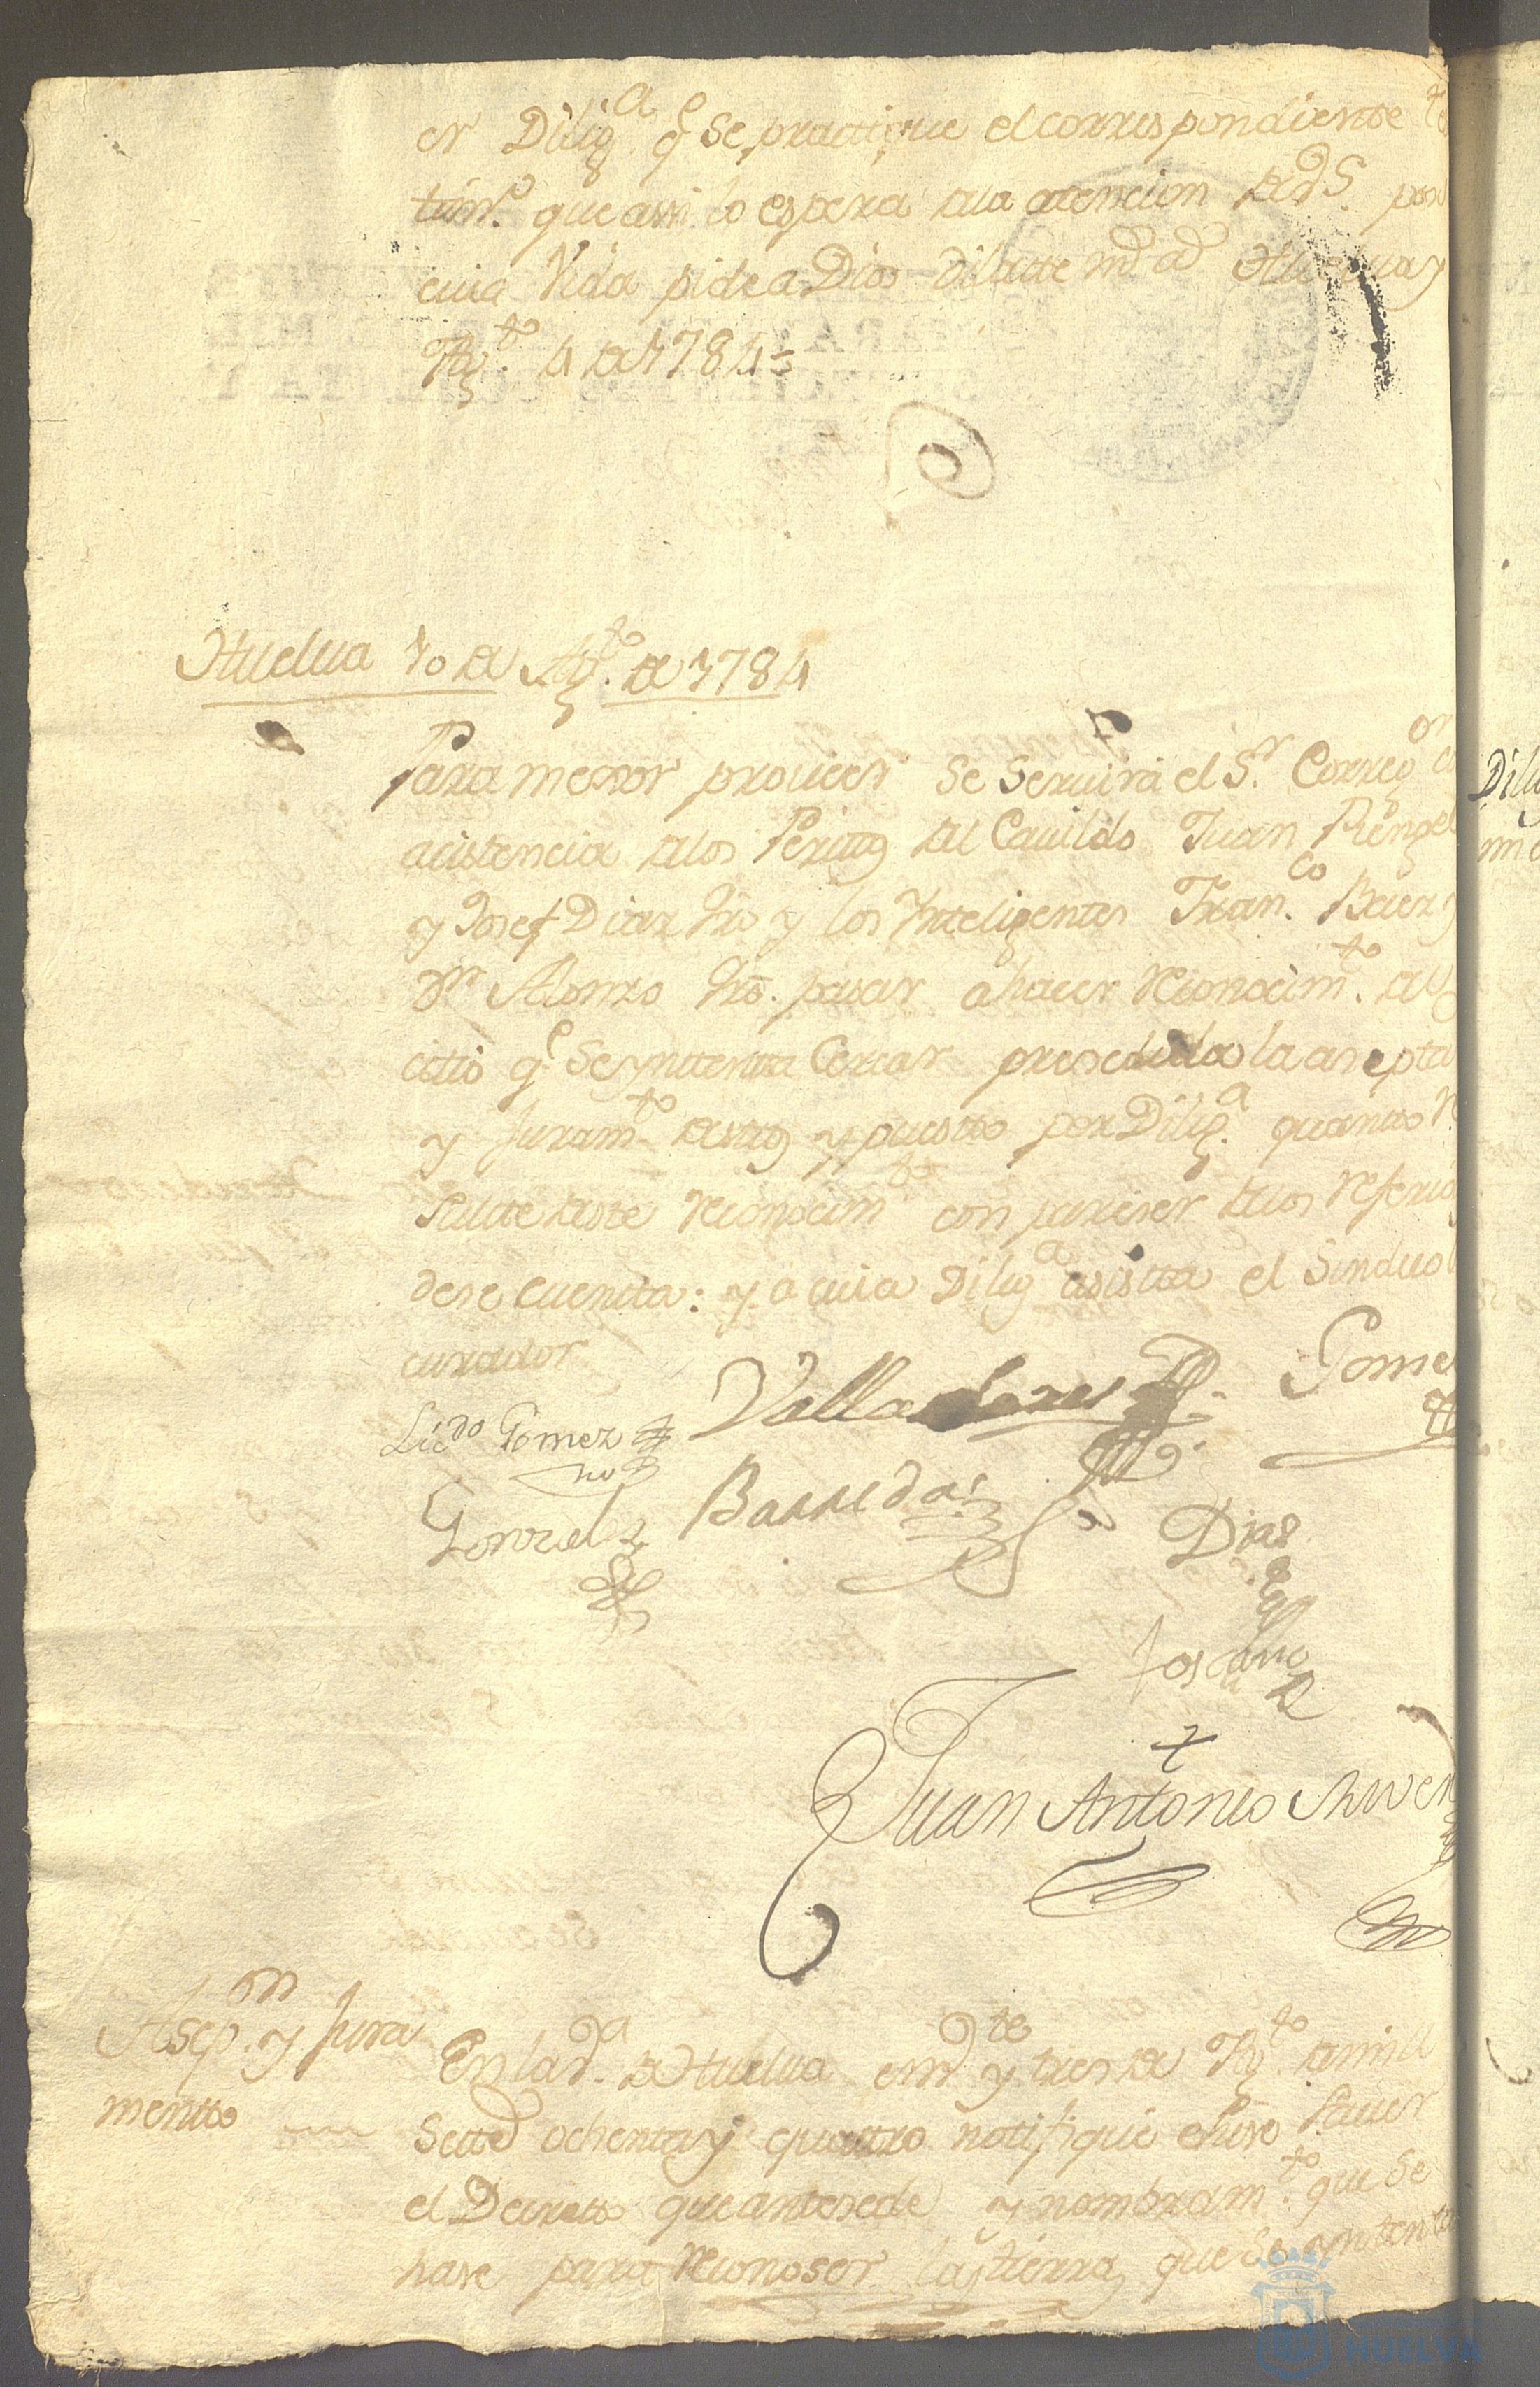 en Dilig.ª q.e se practique el correspondiente
tim.º que assi lo espera de la atencion de Vd.S. por
cuia Vida pide a Dios dilatte m.d a.d Huelva y
Ag.to 4 de 1784=
Huelva 10 de Ag.to de 1784
Para mexor proveer se servirá el S.r Correg.or
acistencia de los Peritos del Cavildo Juan Renxel
y Josef Diaz Hrº y los Ynteligentes Fran.co
D.n Alonzo Hrº. pasar a hacer reconocim.to del
citio q.e se yntenta Cercar presedida la asepta
y Juram.to de estos y puesto por Dilig.ª quanto re
sulte de este reconocim.to con pareser de los referid
dese cuenta: y a cuia Dilig.ª asistta el Sindico
curador
Lic.do Gomez Valladares Gomez
Gonzalz Barreda Dias
Toscano
Juan Antonio
Asep.on y Jura
mentto
En la V.ª de Huelva en v.te y tres de Ag.to de mill
Setted ochenta y quattro notifiqué e hise saver
el Decretto que antesede y nombram.to que se
hase para reconoser las tierras que se yntenta
HUELVA